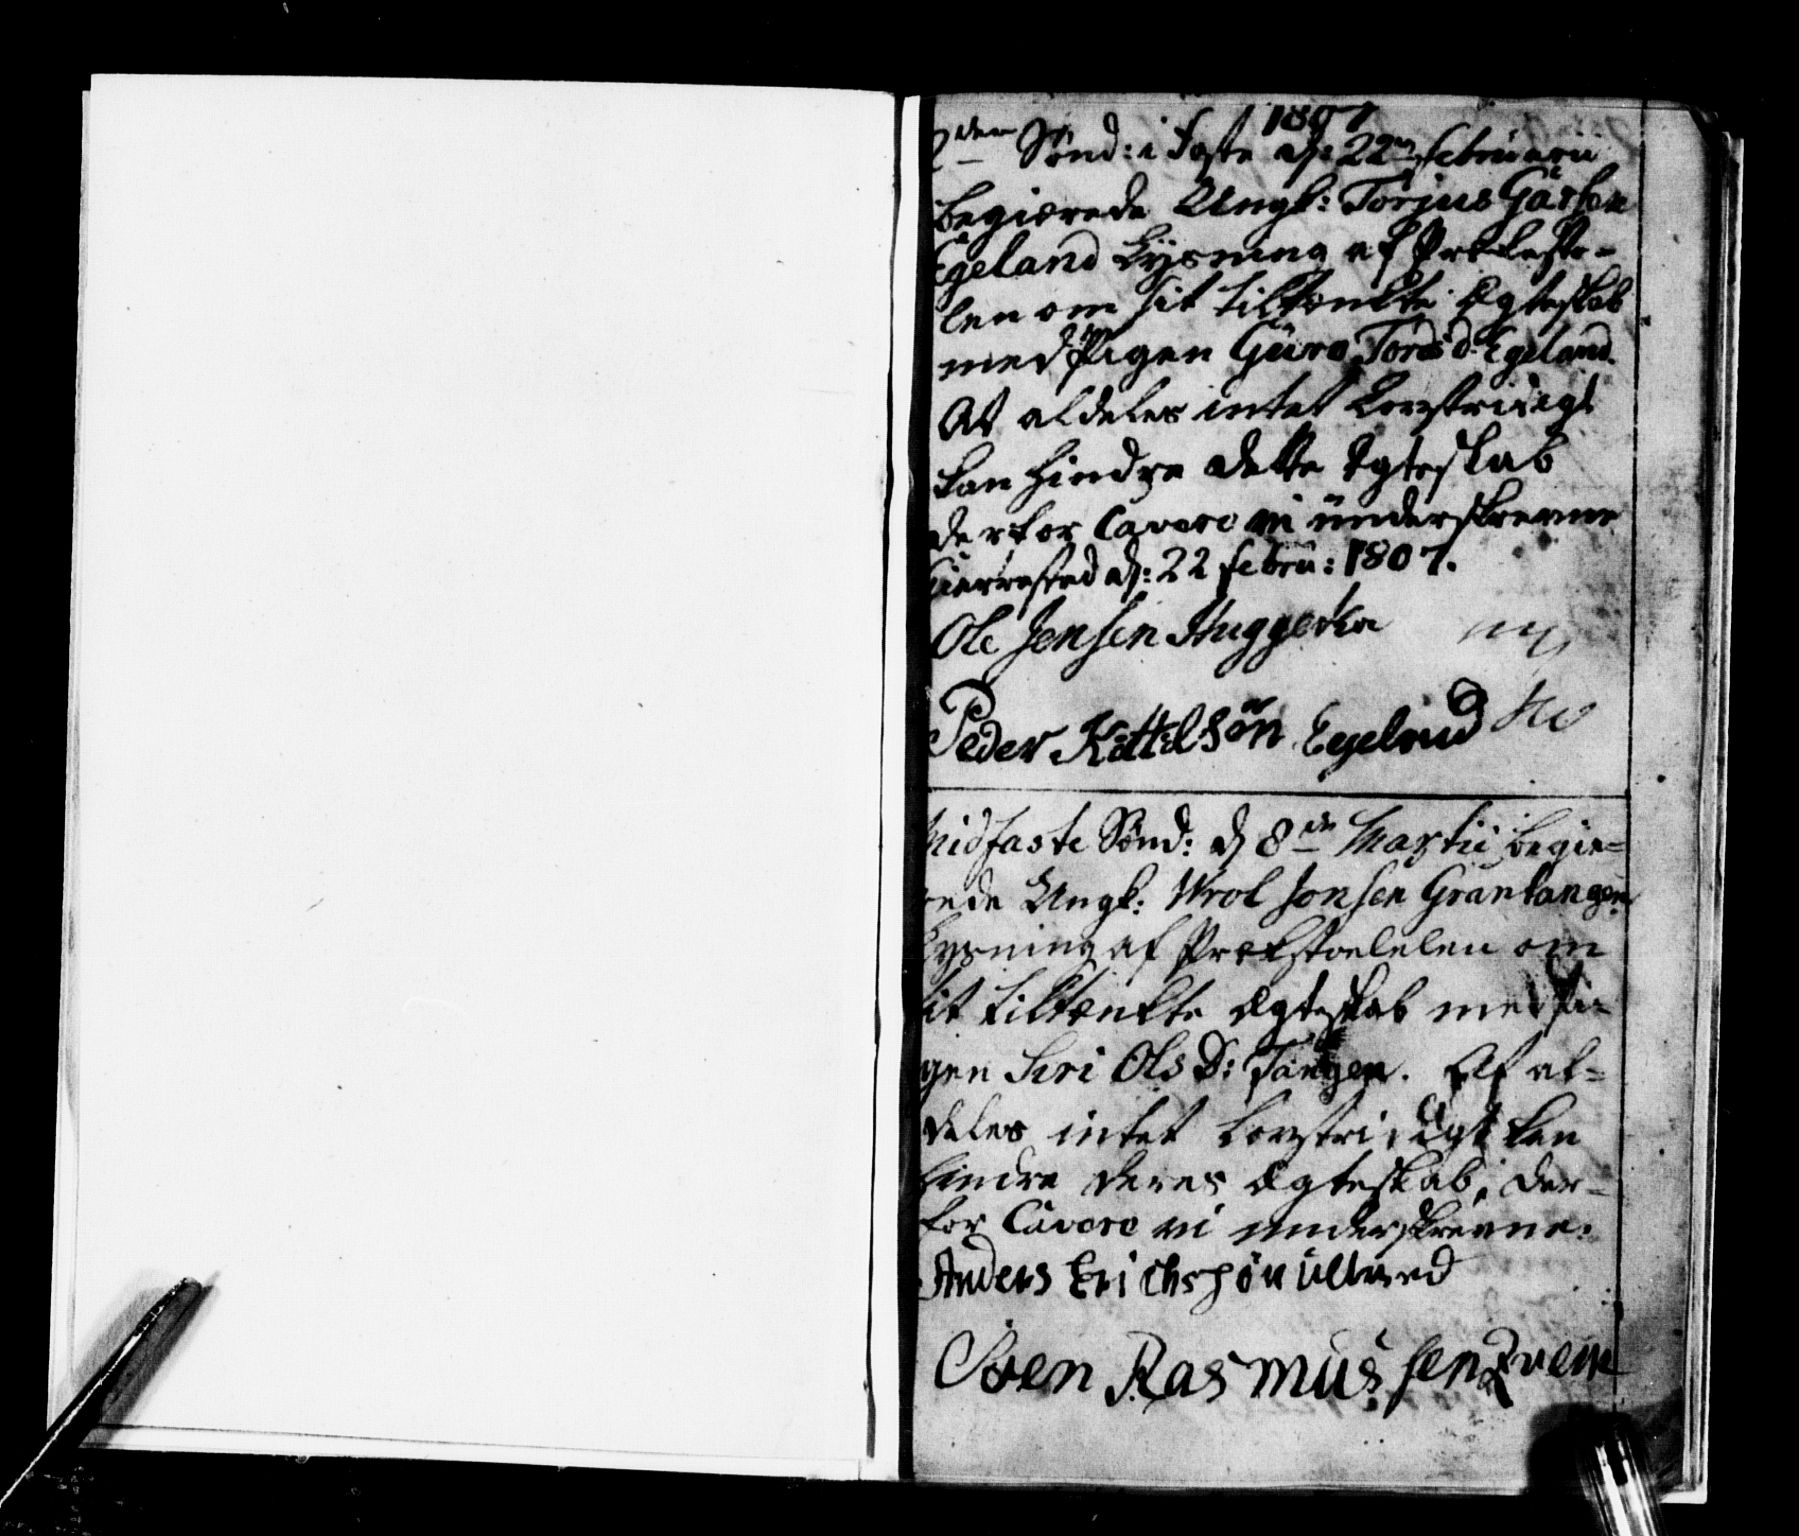 1807
2den Sønd: i Faste d: 22n Februarii
begiærede Ungk: Torjus
Egeland Lysning af Prækesto-
len om sit tiltænkte Ægteskab
med Pigen Guro Tords d: Egeland.
At aldeles intet Lovstridigt
kan hindre dette Ægteskab
derfor Cavere vi underskrevne
Gierrestad d: 22 Febru: 1807.
Ole Jensen
Peder Kittilsøn Egeland
Midfaste Sønd: d 8de Martii begiæ-
rede Ungk: Wrol Jonsen
Lysning af Prækestoelelen om
sit tiltænkte Ægteskab med Pi-
gen Siri Ols D: Tangen. At al-
deles intet Lovstridigt kan
hindre deres Ægteskab, der-
for Cavere vi underskrevne.
Anders Erichsøn
Rasmussen